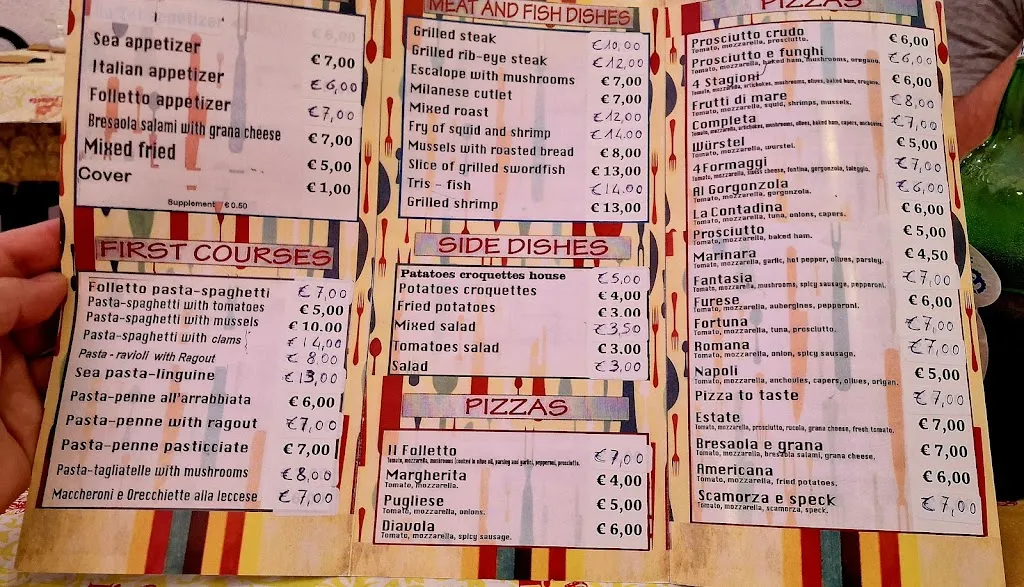 Sea appetizer € 7,00
Italian appetizer € 6,00
Folletto appetizer € 7,00
Bresaola salami with grana cheese € 7,00
Mixed fried € 5,00
Cover € 1,00
Supplement € 0.50
FIRST COURSES
Folletto pasta-spaghetti € 7,00
Pasta-spaghetti with tomatoes € 5,00
Pasta-spaghetti with mussels € 10.00
Pasta-spaghetti with clams € 14,00
Pasta-ravioli with Ragout € 8,00
Sea pasta-linguine € 13,00
Pasta-penne all'arrabbiata € 6,00
Pasta-penne with ragout € 7,00
Pasta-penne pasticciate € 7,00
Pasta-tagliatelle with mushrooms € 8,00
Maccheroni e Orecchiette alla leccese € 7,00
MEAT AND FISH DISHES
Grilled steak € 10,00
Grilled rib-eye steak € 12,00
Escalope with mushrooms € 7,00
Milanese cutlet € 7,00
Mixed roast € 12,00
Fry of squid and shrimp € 14,00
Mussels with roasted bread € 8,00
Slice of grilled swordfish € 13,00
Tris - fish € 14,00
Grilled shrimp € 13,00
SIDE DISHES
Patatoes croquettes house € 5,00
Potatoes croquettes € 4,00
Fried potatoes € 3.00
Mixed salad € 3,50
Tomatoes salad € 3.00
Salad € 3,00
PIZZAS
Il Folletto € 7,00
Tomato, mozzarella, mushrooms (cooked in olive oil, parsley and garlic), pepperoni, prosciutto.
Margherita € 4,00
Tomato, mozzarella.
Pugliese € 5,00
Tomato, mozzarella, onions.
Diavola € 6,00
Tomato, mozzarella, spicy sausage.
PIZZAS
Prosciutto crudo € 6,00
Tomato, mozzarella, prosciutto.
Prosciutto e funghi € 6,00
Tomato, mozzarella, baked ham, mushrooms, oregano.
4 Stagioni € 6,00
Tomato, mozzarella, artichokes, mushrooms, olives, baked ham, oregano.
Frutti di mare € 8,00
Tomato, mozzarella, squid, shrimps, mussels.
Completa € 7,00
Tomato, mozzarella, artichokes, mushrooms, olives, baked ham, capers, anchovies.
Würstel € 5,00
Tomato, mozzarella, wurstel.
4 Formaggi € 7,00
Tomato, mozzarella, swiss cheese, fontina, gorgonzola, taleggio.
Al Gorgonzola € 6,00
Tomato, mozzarella, gorgonzola.
La Contadina € 6,00
Tomato, mozzarella, tuna, onions, capers.
Prosciutto € 5,00
Tomato, mozzarella, baked ham.
Marinara € 4,50
Tomato, mozzarella, garlic, hot pepper, olives, parsley.
Fantasia € 7,00
Tomato, mozzarella, mushrooms, spicy sausage, pepperoni.
Furese € 6,00
Tomato, mozzarella, aubergines, pepperoni.
Fortuna € 7,00
Tomato, mozzarella, tuna, prosciutto.
Romana € 7,00
Tomato, mozzarella, onion, spicy sausage.
Napoli € 5,00
Tomato, mozzarella, anchovies, capers, olives, origan.
Pizza to taste € 7,00
Estate € 7,00
Tomato, mozzarella, prosciutto, rucola, grana cheese, fresh tomato.
Bresaola e grana € 7,00
Tomato, mozzarella, bresaola salami, grana cheese.
Americana € 6,00
Tomato, mozzarella, fried potatoes.
Scamorza e speck € 7,00
Tomato, mozzarella, scamorza, speck.